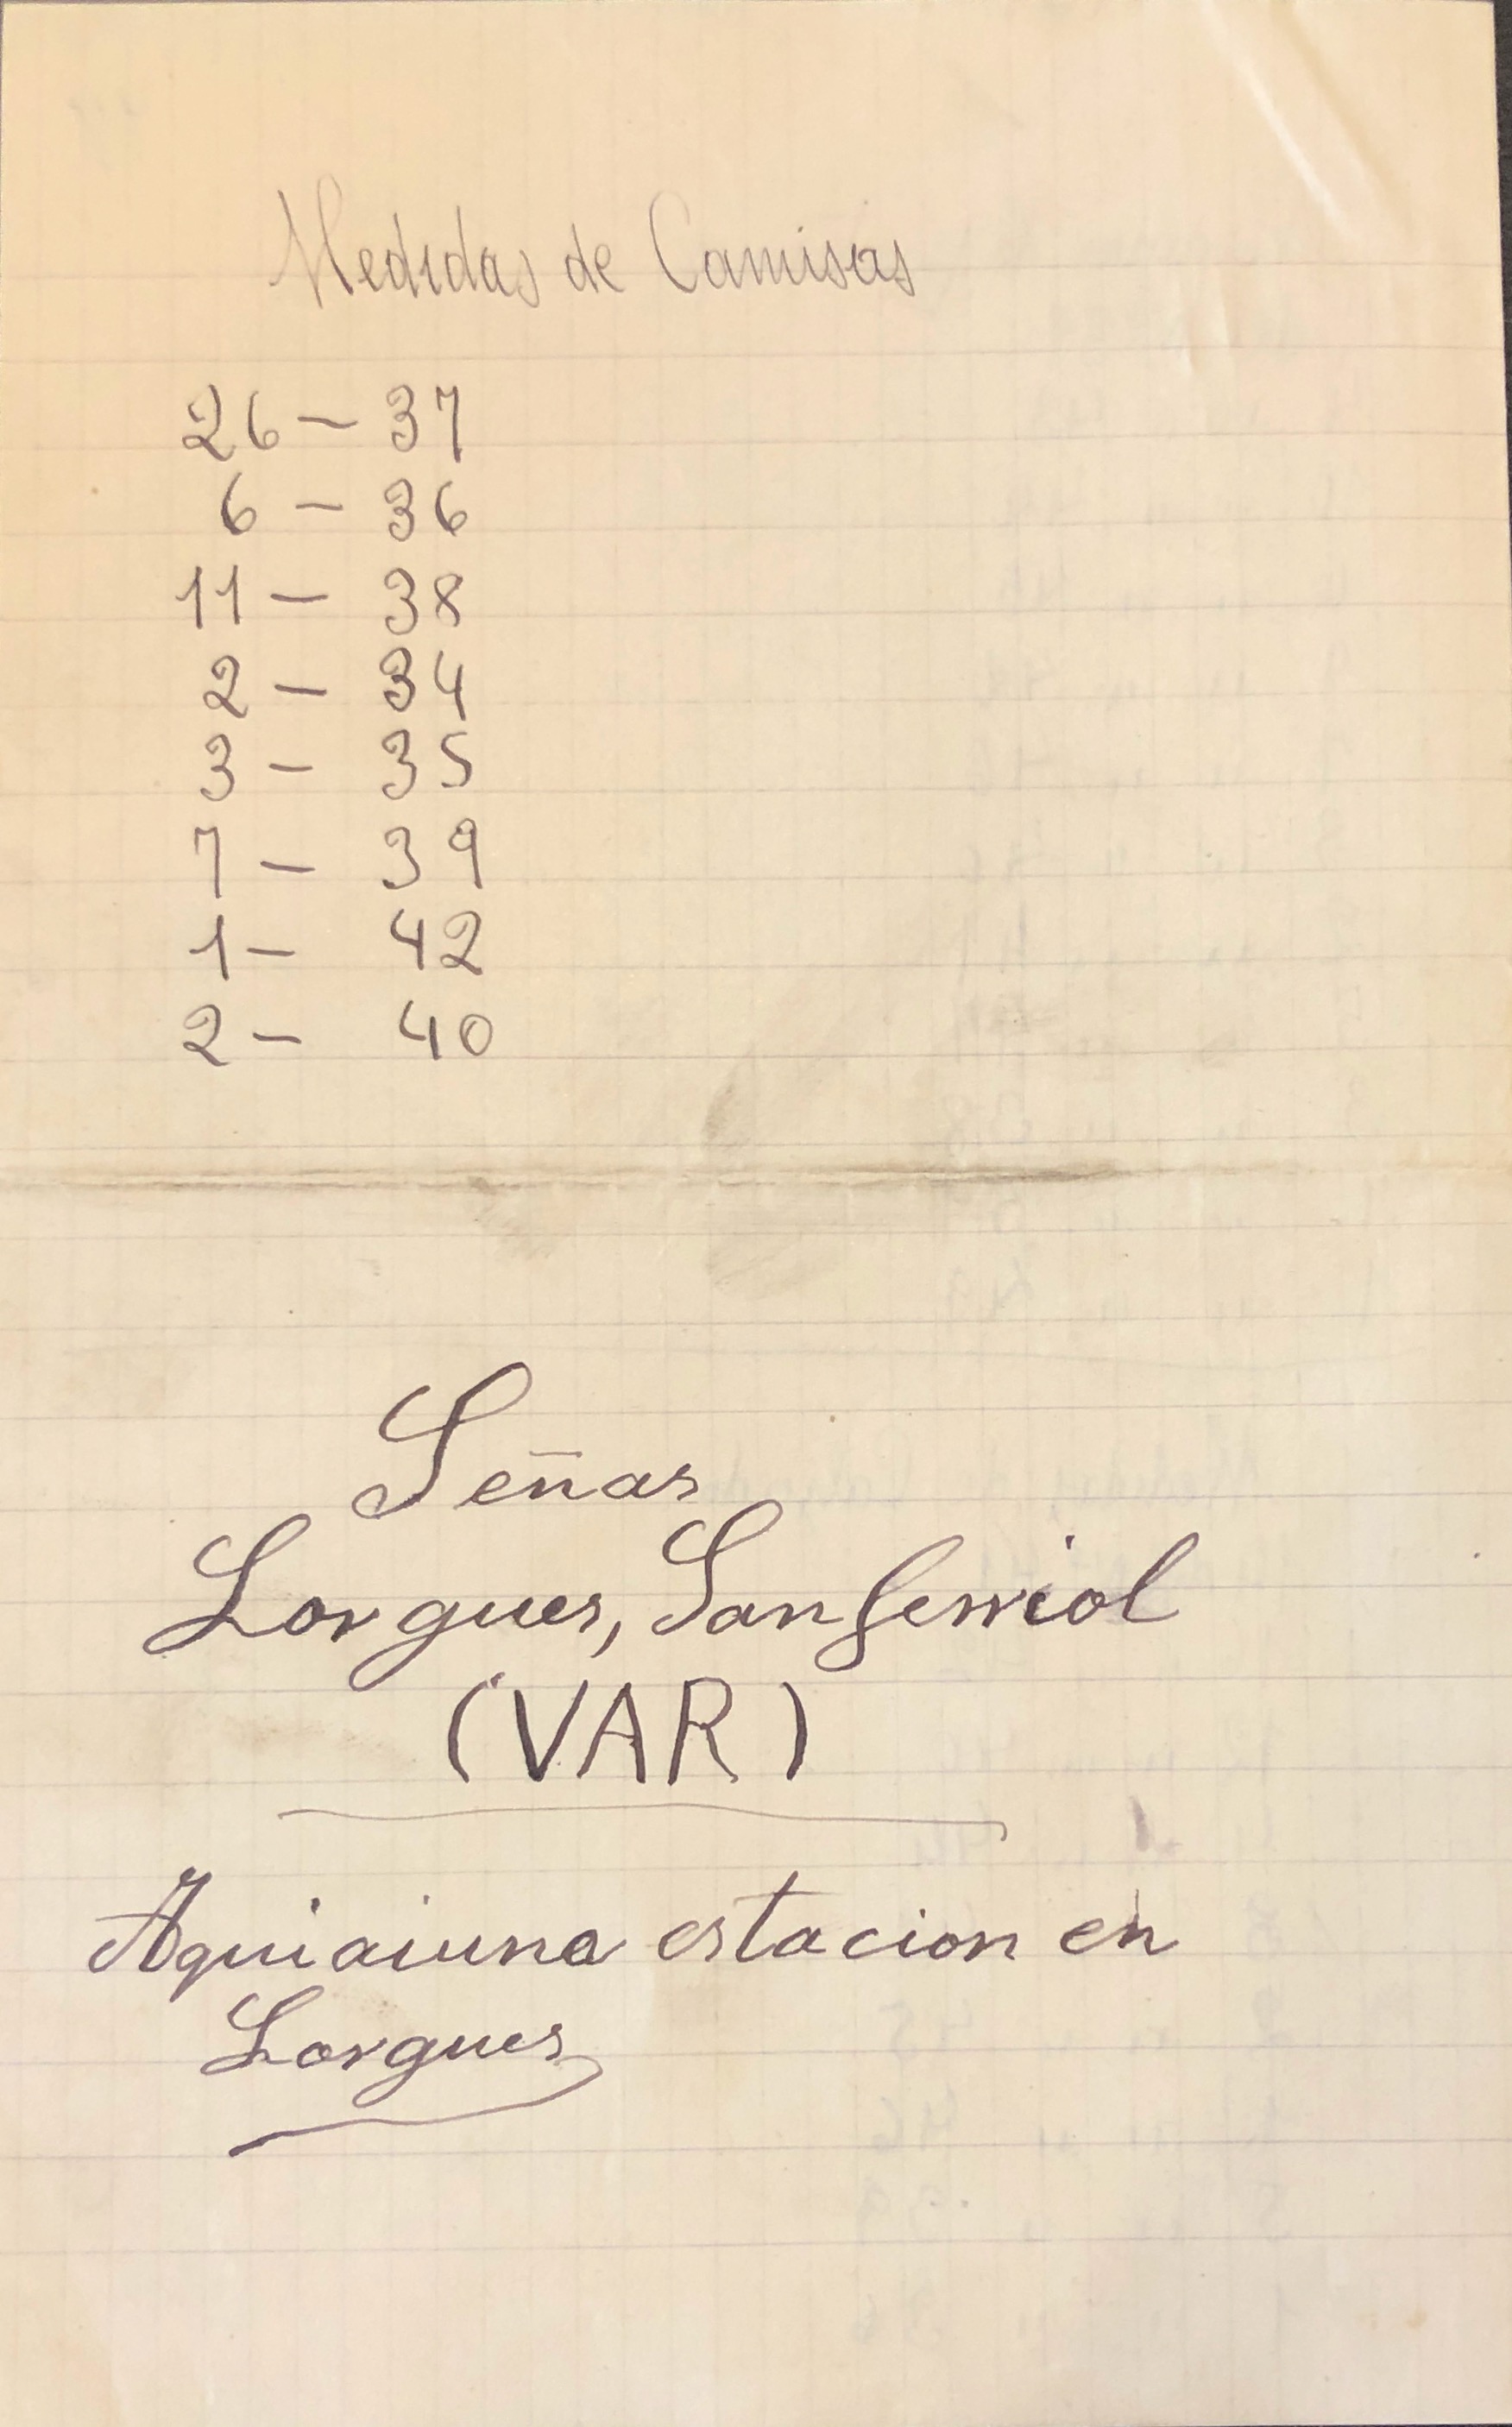 Medidas de Camisas
26 - 37
6 - 36
11 - 38
2 - 34
3 - 35
7 - 39
1 - 42
2 - 40
Señas
Lorgues,
(VAR)
Aquiaiuna estacion en
Lorgues